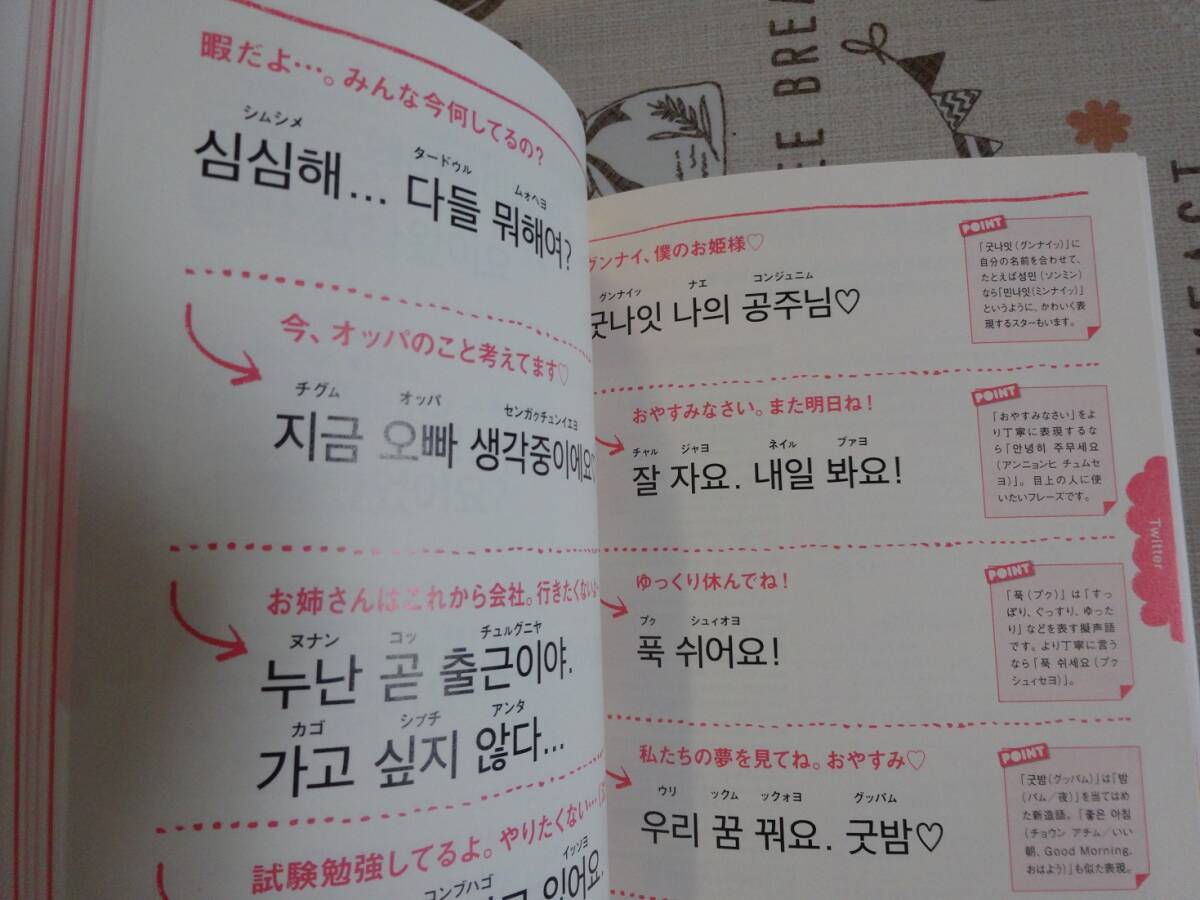 暇だよ…。みんな今何してるの？
シムシメ タードゥル ムォヘヨ
심심해... 다들 뭐해여?
今、オッパのこと考えてます♡
チグム オッパ センガクチュンイエヨ
지금 오빠 생각중이에요
お姉さんはこれから会社。行きたくない
ヌナン コッ チュルグニヤ
누난 곧 출근이야.
カゴ シプチ アンタ
가고 싶지 않다...
試験勉強してるよ。やりたくない…
コンブハゴ イッソヨ
있어요.
グンナイ、僕のお姫様♡
グンナイッ ナエ コンジュニム
굿나잇 나의 공주님♡
POINT
「굿나잇(グンナイッ)」に
自分の名前を合わせて、
たとえば성민(ソンミン)
なら「민나잇(ミンナイッ)」
というように、かわいく表
現するスターもいます。
おやすみなさい。また明日ね！
チャル ジャヨ ネイル ブァヨ
잘 자요. 내일 봐요!
POINT
「おやすみなさい」をよ
り丁寧に表現するなら
「안녕히 주무세요
(アンニョンヒ チュムセ
ヨ)」。目上の人に使
いたいフレーズです。
ゆっくり休んでね！
プゥ シュィオヨ
푹 쉬어요!
POINT
「푹(プク)」は「すっ
ぽり、ぐっすり、ゆった
り」などを表す擬声語
です。より丁寧に言う
なら「푹 쉬세요(プゥ
シュィセヨ)」。
私たちの夢を見てね。おやすみ♡
ウリ ックム ックォヨ グッバム
우리 꿈 꿔요. 굿밤♡
POINT
「굿밤(グッバム)」は「밤
(バム／夜)」を当てはめ
た新造語。「좋은 아침
(チョウン アチム／いい
朝、Good Morning、
おはよう)」も似た表現。
Twitter